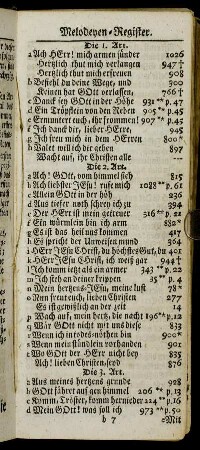 Melodeyen-Register.
Die 1. Art.
a Ach HErr! mich armen sünder 1026
Hertzlich thut mich verlangen 947†
Hertzlich thut mich erfreuen 908
b Befiehl du deine Wege, und 300
Keinen hat GOtt verlassen, 766†
c Danck sey GOtt in der Höhe 931** p.47
d Ein Tröpflein von den Reben 905** p.45
e Ermuntert euch, ihr frommen! 907** p.45
f Ich danck dir, lieber HErre, 945
g Ich freu mich in dem HErren 800*
h Valet will ich dir geben 897
Wacht auf, ihr Christen alle ---
Die 2. Art.
a Ach! GOtt, vom himmel sieh 815
b Ach liebster JEsu! rufe mich 1088** p.61
c Allein GOtt in der höh 436
d Aus tiefer noth schrey ich zu 394
e Der HErr ist mein getreuer 316** p.22
f Ein würmlein bin ich arm 882*
g Es ist das heil uns kommen 417
h Es spricht der Unweisen mund 364
i HErr JEsu Christ, du höchstes Gut, du
k HErr JEsu Christ, ich weiß gar 944†
l Ich komm jetzt als ein armer 343** p.22
m Ich steh an deiner krippen 35** p.4
n Mein hertzens-JEsu, meine lust 78*
o Nun freut euch, lieben Christen 277
Es ist gewißlich an der zeit 14
p Wach auf, mein hertz, die nacht 196** p.12
q Wär GOtt nicht mit uns diese 833
r Wenn ich in todes-nöthen bin 900*
s Wenn mein stündlein vorhanden 901
t Wo GOtt der HErr nicht bey 835
Ach! lieben Christen, seyd 876
Die 3. Art.
a Aus meines hertzens grunde 928
b GOtt fähret auf gen himmel 206** p.13
c Komm, Tröster, komm hernieder 224** p.16
d Mein GOtt! was soll ich 973** p.50
b 7 e Mit